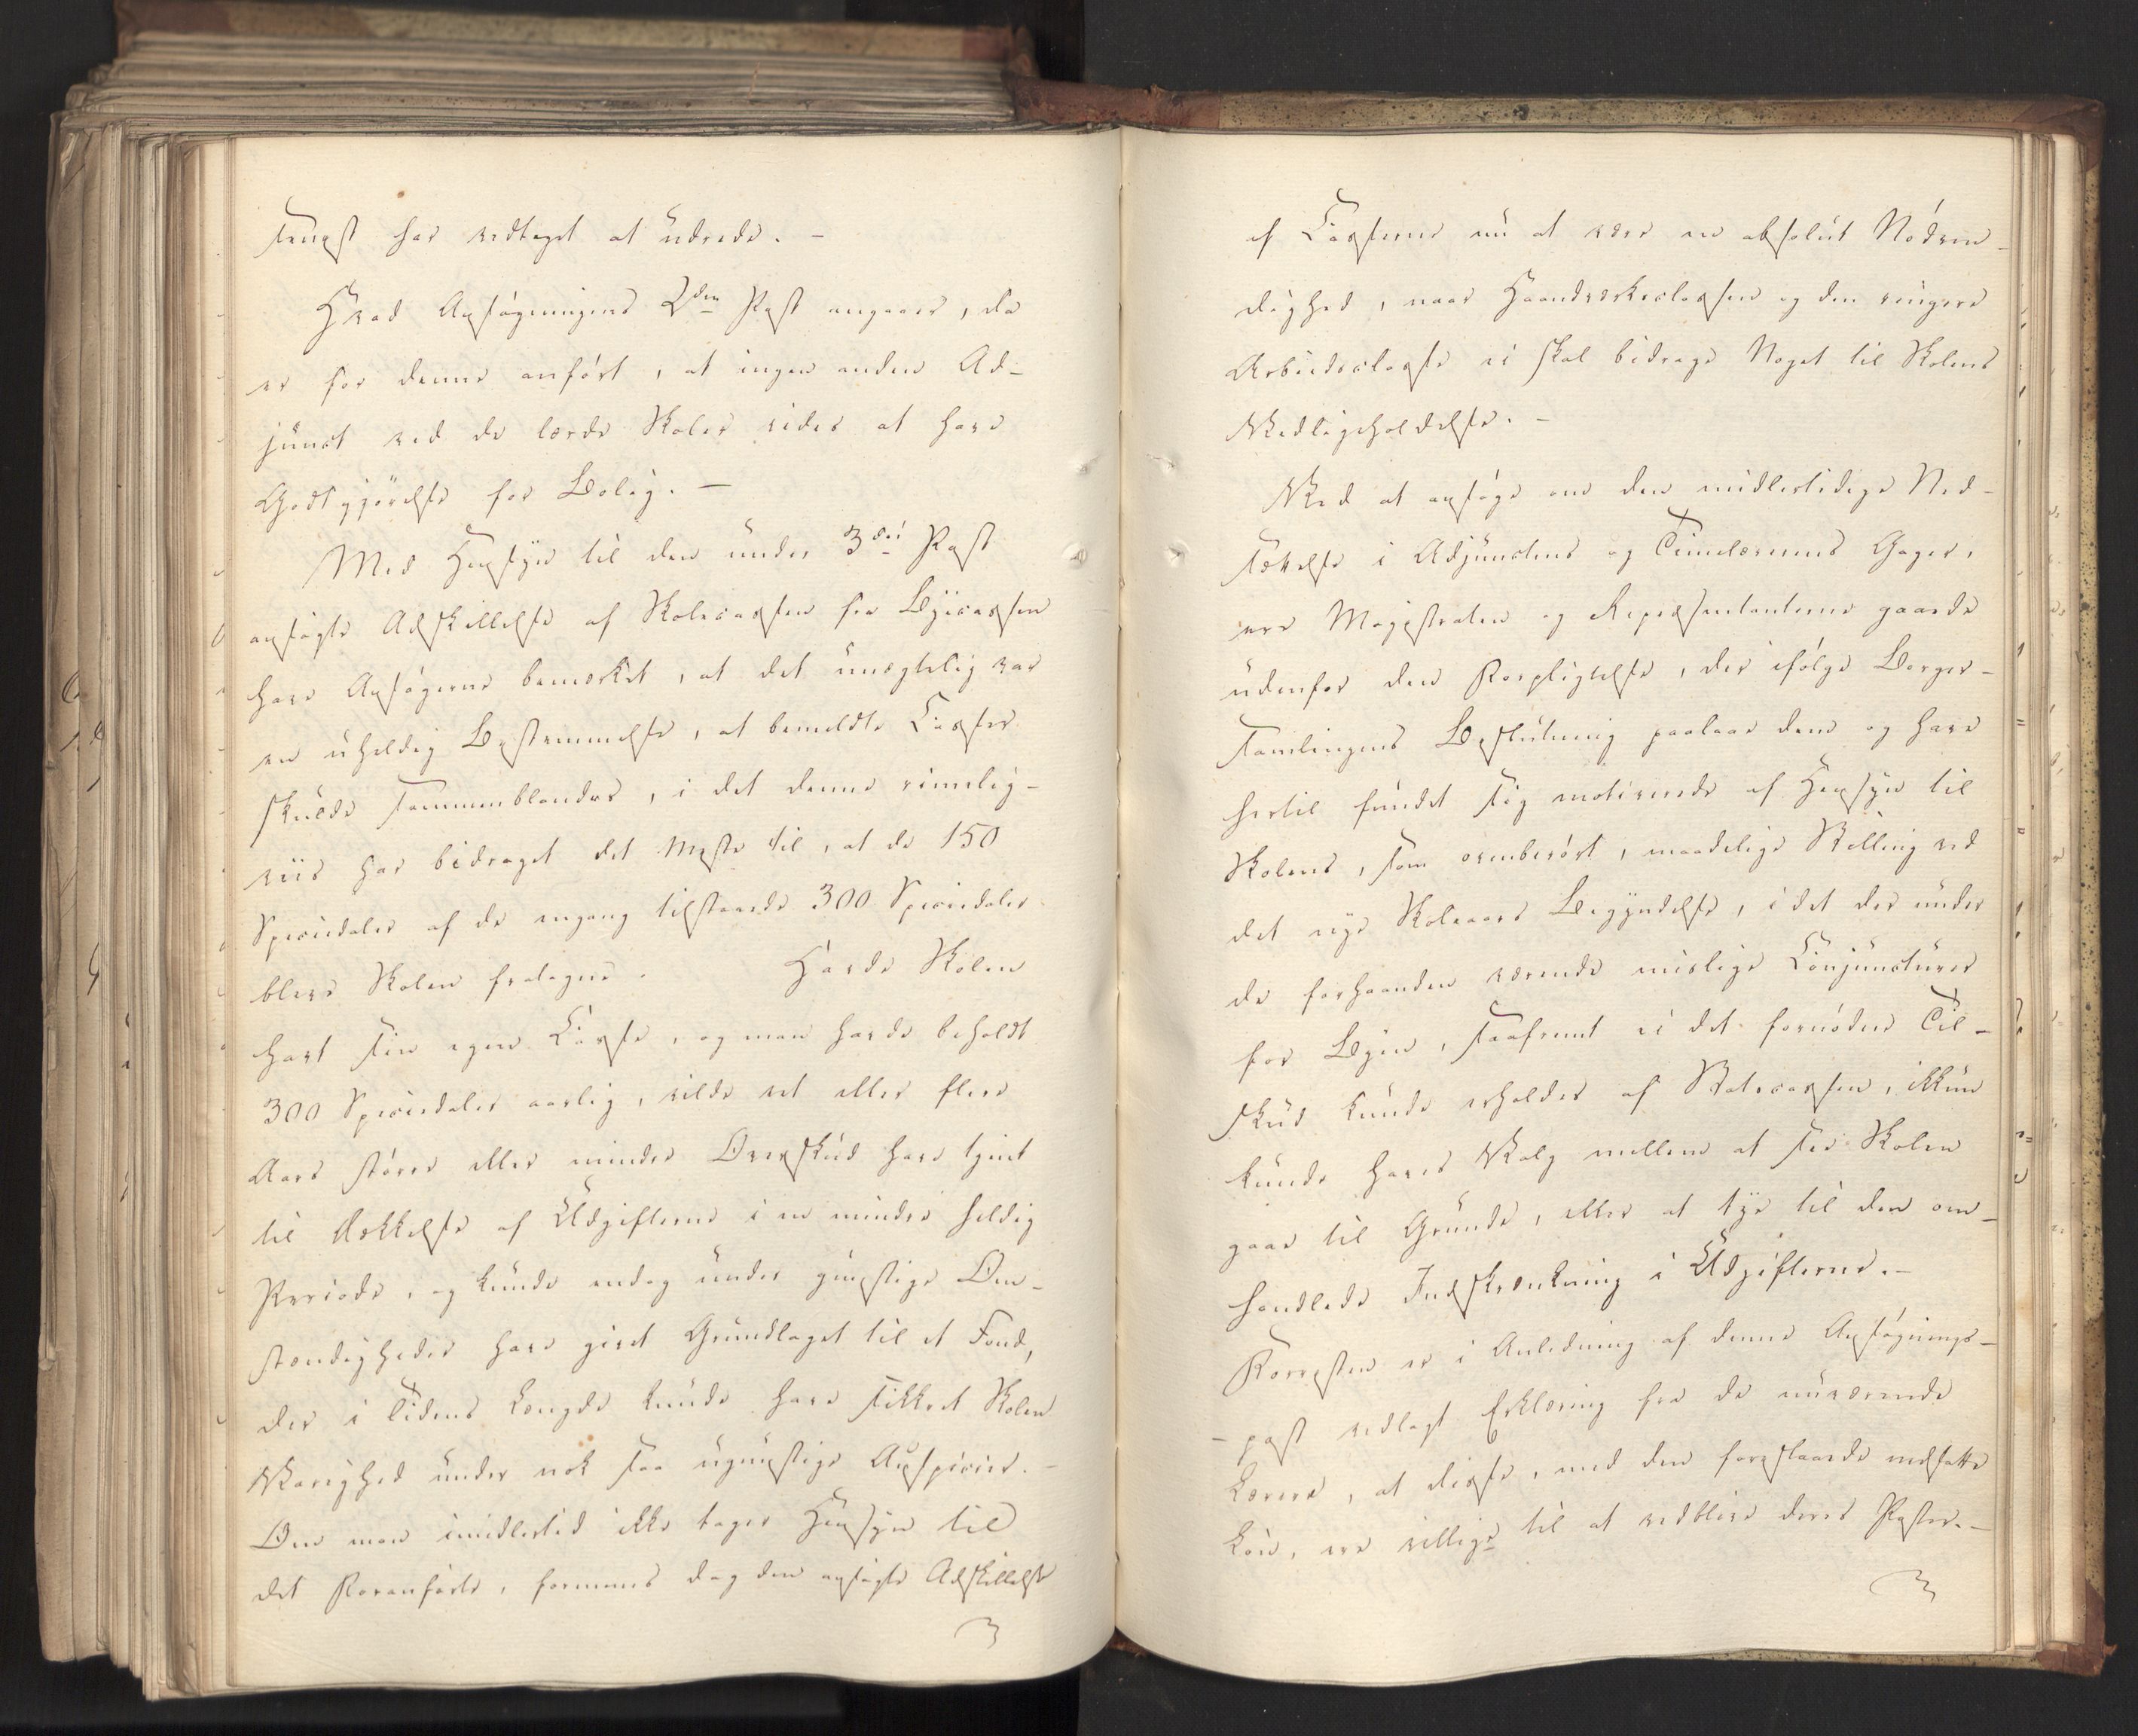 Trugst har vedtaget at udrede. –
Hvad Ansøgningens 2den Post angaaer, da
er for denne anført, at ingen anden Ad-
junct ved de lærde Skoler vides at have
Godtgjørelse for Bolig. –
Med Hensyn til den under 3die Post
ansøgte Adskillelse af Skolecassen fra Byecassen
have Ansøgerne bemærket, at det unægtelig var
en uheldig Bestemmelse, at bemeldte Casser
skulde sammenblandes, i det denne rimelig-
viis har bidraget det Meste til, at de 150
Speciedaler af de engang tilstaaede 300 Speciedaler
bleve Skolen fratagne. Havde Skolen
havt sin egen Casse, og man havde beholdt
300 Speciedaler aarlig, vilde et eller flere
Aars større eller mindre Overskud have tjent
til Dækkelse af Udgifterne i en mindre heldig
Periode, og kunde endog under gunstige Om-
stændigheder have givet Grundlaget til et Fond,
der i Tidens Længde kunde have sikkret Skolen
Varighed under nok saa ugunstige Auspicier. –
Om man imidlertid ikke tager Hensyn til
det Foranførte, formenes dog den ansøgte Adskillelse
af Casserne nu at være en absolut Nødven-
dighed, naar Haandværksclassen og den ringere
Arbeidsclasse ei skal bidrage Noget til Skolens
Vedligeholdelse. –
Ved at ansøge om den midlertidige Ned-
sættelse i Adjunctens og Timelærernes Gager,
ere Magistraten og Repræsentanterne gaaede
udenfor den Forpligtelse, der ifølge Borger-
samlingens Beslutning paalaae dem og have
hertil fundet sig motiverede af Hensyn til
Skolens, som ovenberørt, maadelige Stilling ved
det nye Skoleaars Begyndelse, i det der under
de forhaanden værende mislige Conjuncturer
for Byen, saafremt ei det fornødne Til-
skud kunde erholdes af Statscassen, ikkun
kunde haves Valg mellem at see Skolen
gaae til Grunde, eller at tye til den om-
handlede Indskrænkning i Udgifterne. –
Forresten er i Anledning af denne Ansøgnings-
- post vedlagt Erklæring fra de nuværende
Lærere, at disse, med den foreslaaede nedsatte
Løn, ere villige til at vedblive deres Poster. –